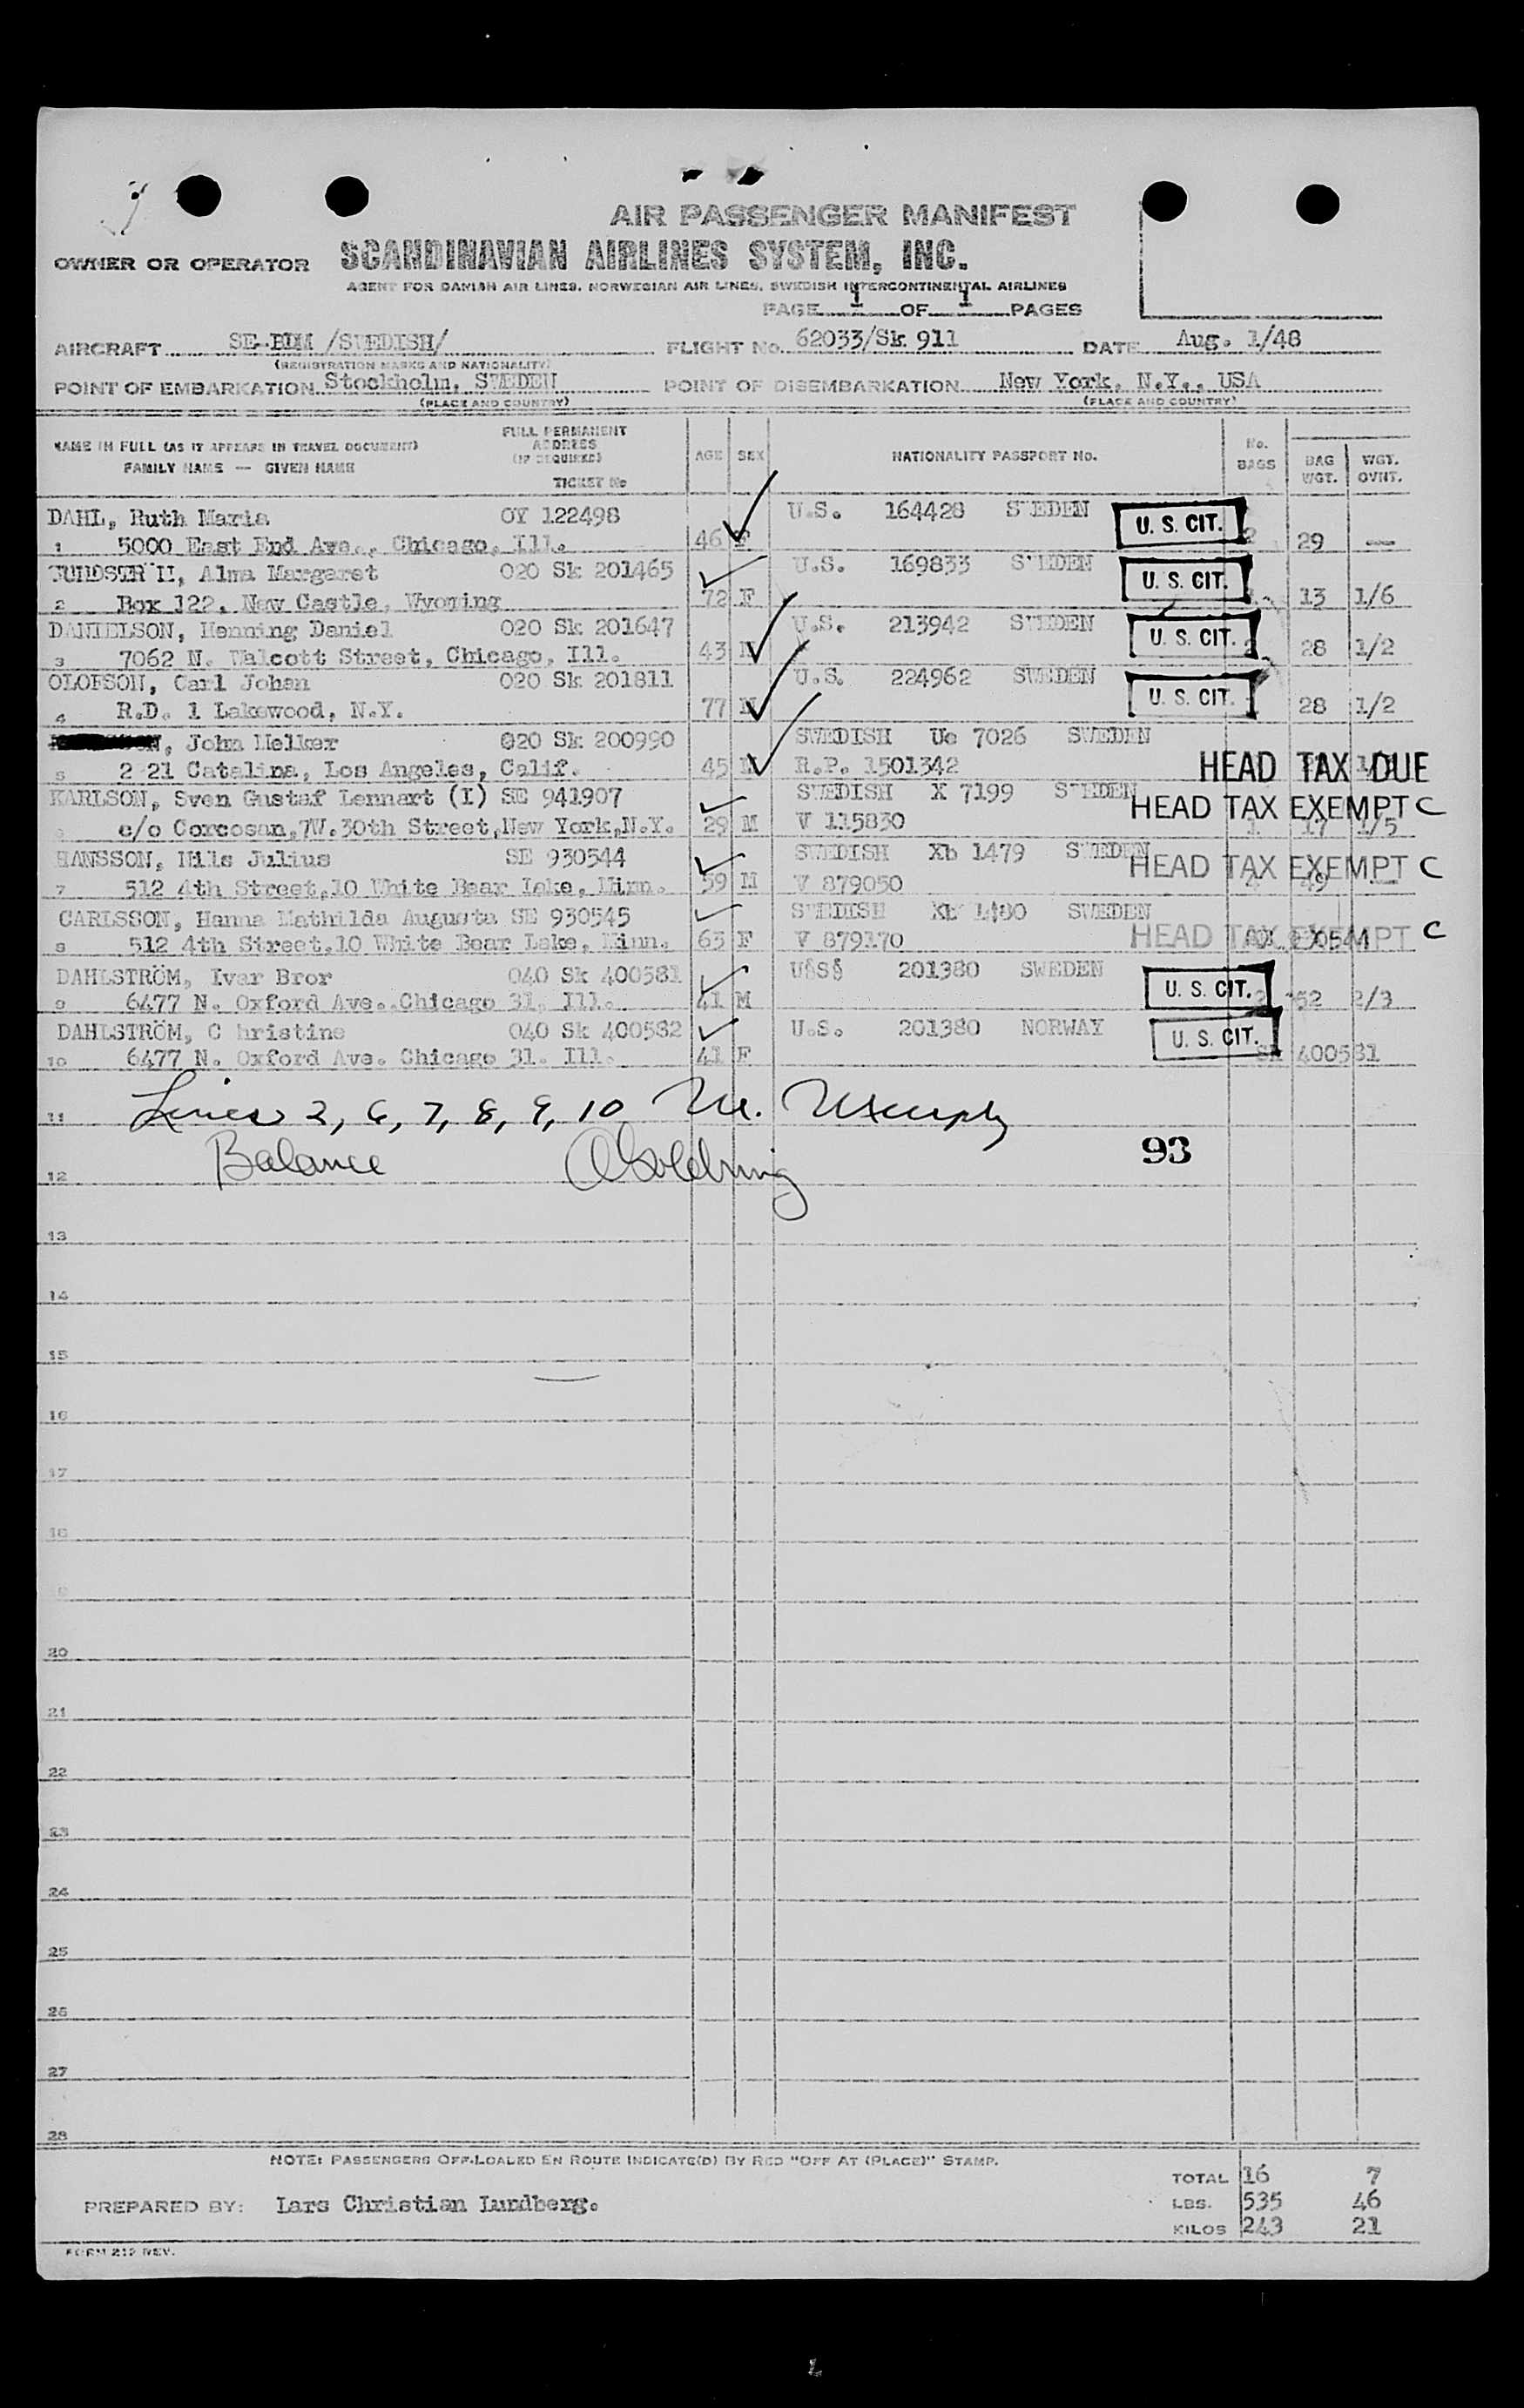 AIR PASSENGER MANIFEST
OWNER OR OPERATOR SCANDINAVIAN AIRLINES SYSTEM, INC.
AGENT FOR DANISH AIR LINES, NORWEGIAN AIR LINES, SWEDISH INTERCONTINENTAL AIRLINES
PAGE 1 OF 1 PAGES
AIRCRAFT SE-BDM /SWEDISH/ FLIGHT No. 62033/Sk 911 DATE Aug. 1/48
(REGISTRATION MARKS AND NATIONALITY)
POINT OF EMBARKATION Stockholm, SWEDEN POINT OF DISEMBARKATION New York, N.Y., USA
(PLACE AND COUNTRY) (PLACE AND COUNTRY)
NAME IN FULL (AS IT APPEARS IN TRAVEL DOCUMENT) FULL PERMANENT ADDRESS (IF REQUIRED) AGE SEX NATIONALITY PASSPORT No. No. BAGS BAG WGT. WGT. OVNT.
FAMILY NAME — GIVEN NAME TICKET No
DAHL, Ruth Maria OY 122498 U.S. 164428 SWEDEN U. S. CIT.
1 5000 East End Ave., Chicago, Ill. 46 F 2 29 —
Alma Margaret 020 Sk 201465 U.S. 169833 SWEDEN U. S. CIT.
2 Box 122, New Castle, Wyoming 72 F 13 1/6
DANIELSON, Henning Daniel 020 Sk 201647 U.S. 213942 SWEDEN U. S. CIT.
3 7062 N. Walcott Street, Chicago, Ill. 43 M 28 1/2
OLOFSON, Carl Johan 020 Sk 201811 U.S. 224962 SWEDEN U. S. CIT.
4 R.D. 1 Lakewood, N.Y. 77 M 28 1/2
John Melker 020 Sk 200990 SWEDISH Uc 7026 SWEDEN
5 2 21 Catalina, Los Angeles, Calif. 45 M R.P. 1501342 HEAD TAX DUE
KARLSON, Sven Gustaf Lennart (I) SE 941907 SWEDISH X 7199 SWEDEN HEAD TAX EXEMPT C
6 c/o Corcosan, 7W. 30th Street, New York, N.Y. 29 M V 115830 1 17 1/5
HANSSON, Nils Julius SE 930544 SWEDISH Xb 1479 SWEDEN HEAD TAX EXEMPT C
7 512 4th Street, 10 White Bear Lake, Minn. 59 M V 879050 4 49 —
CARLSSON, Hanna Mathilda Augusta SE 930545 SWEDISH Xb 1480 SWEDEN
8 512 4th Street, 10 White Bear Lake, Minn. 63 F V 879170 HEAD TAX EXEMPT C
DAHLSTRÖM, Ivar Bror 040 Sk 400581 U§S§ 201380 SWEDEN U. S. CIT.
9 6477 N. Oxford Ave. Chicago 31. Ill. 41 M 2 52 2/3
DAHLSTRÖM, C hristine 040 Sk 400582 U.S. 201380 NORWAY U. S. CIT.
10 6477 N. Oxford Ave. Chicago 31. Ill. 41 F Sk 400581
11 Lines 2, 6, 7, 8, 9, 10 M.
12 Balance Goldring 93
13
14
15
16
17
18
20
21
22
23
24
25
26
27
28
NOTE: PASSENGERS OFF-LOADED EN ROUTE INDICATE(D) BY RED "OFF AT (PLACE)" STAMP.
TOTAL 16 7
PREPARED BY: Lars Christian Lundberg. LBS. 535 46
KILOS 243 21
FORM 212 REV.